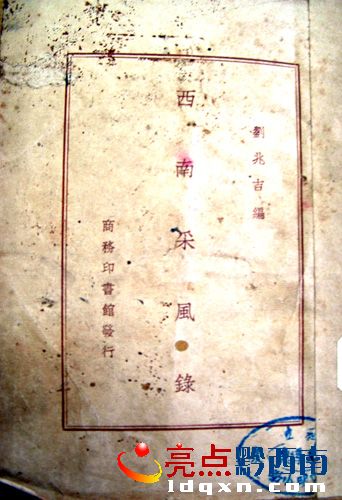 劉兆吉編
西南采風錄
商務印書館發行
亮点黔西南
ldqxn.com